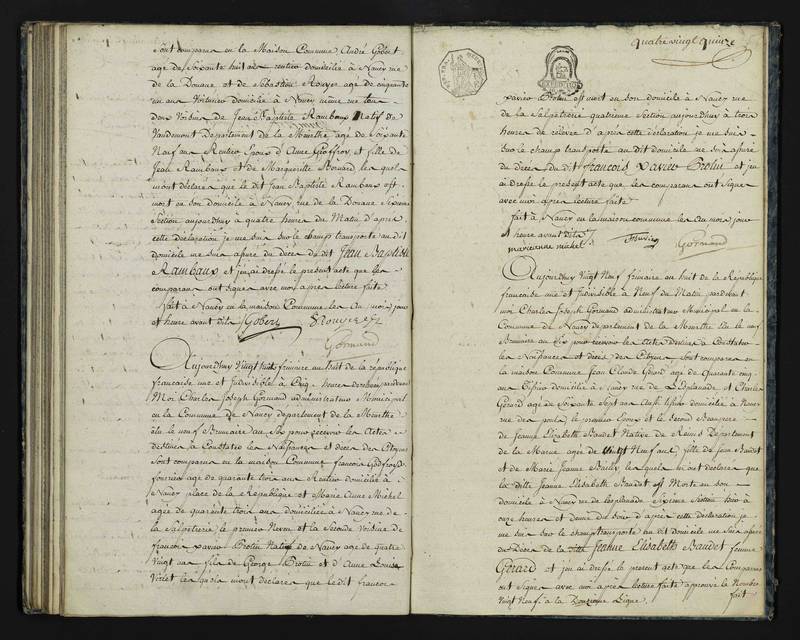 Sont comparus en la Maison Commune André Gobert
agé de Soixante huit ans rentier domicilié à Nancy rue
de la Douane et de Sébastien Rouyer agé de cinquante
un ans Voiturier domicilié à Nancy même rue tous
deux Voisins de Jean Baptiste Rambaux Natif de
Vaudemont Departement de la Meurthe agé de Soixante
Neuf ans Rentier Epoux d'Anne Geoffroy et fils de
Jean Rambaux et de Margueritte Bernard les quels
m'ont déclaré que le dit Jean Baptiste Rambaux est
mort en son domicile à Nancy rue de la Douane Sixieme
Section aujourdhuy à quatre heures du Matin d'après
cette déclaration je me suis sur le champ transporté au dit
domicile me suis assuré du décès du dit Jean Baptiste
Rambaux et j'en ai dressé le présent acte que les
comparans ont signés avec moi après lecture faite
fait à Nancy en la maison Commune les an mois jour
et heure avant dits Gobert S Rouyer
Gormand
Aujourdhuy Vingt huit frimaire an huit de la république
francaise une et Indivisible à Cinq heures de relevée pardevant
Moi Charles Joseph Gormand administrateur Municipal
en la Commune de Nancy département de la Meurthe
élu le neuf Brumaire an Six pour recevoir les Actes
destinés à Constater les Naissances et décès des Citoyens
Sont comparus en la maison Commune francois Godfroy
fourier agé de quarante trois ans Rentier domicilié à
Nancy place de la République et Marie Anne Michel
agée de quarante trois ans domiciliée à Nancy rue de
la Salpetrière le premier Neveu et la Seconde Voisine de
francois Xavier Protin Natif de Nancy agé de quatre
Vingt ans fils de George Protin et d'Anne Louise
Viriet les quels m'ont déclarés que le dit francois
Quatre vingt Quinze
Xavier Protin est mort en son domicile à Nancy rue
de la Salpetrière quatrieme Section aujourdhuy à trois
heures de relevée d'après cette déclaration je me suis
sur le champ transporté au dit domicile me suis assuré
du décès du dit francois Xavier Protin et j'en
ai dressé le présent acte que les comparans ont signé
avec moi après lecture faite
fait à Nancy en la maison commune les an mois jour
et heure avant dits
marieanne michel Gormand
Aujourdhuy Vingt Neuf frimaire an huit de la République
francaise une et Indivisible à Neuf du Matin pardevant
moi Charles Joseph Gormand administrateur Municipal en la
Commune de Nancy département de la Meurthe élu le neuf
Brumaire an Six pour recevoir les Actes destinés à Constater
les Naissances et décès des Citoyens Sont comparus en
la maison Commune Jean Claude Gérard agé de Quarante cinq
ans domicilié à Nancy rue de l'Esplanade et Charles
Gérard agé de Soixante Sept ans aussi domicilié à Nancy
rue des ponts le premier Epoux et le second Beaupere
de Jeanne Elisabeth Baudet Native de Reims Département
de la Marne agée de Vingt Neuf ans fille de Jean Baudet
et de Marie Jeanne les quels m'ont déclarés que
la ditte Jeanne Elisabeth Baudet est Morte en son
domicile à Nancy rue de l'esplanade Sixieme Section hier à
onze heures et demie du Soir d'après cette déclaration je
me suis sur le champ transporté au dit domicile me suis assuré
du Décès de la ditte Jeanne Elisabeth Baudet femme
Gérard et j'en ai dressé le présent acte que les Comparans
ont Signé avec moi après lecture faite approuvé le Nombre
Vingt Neuf à la Douzieme Ligne.
fait